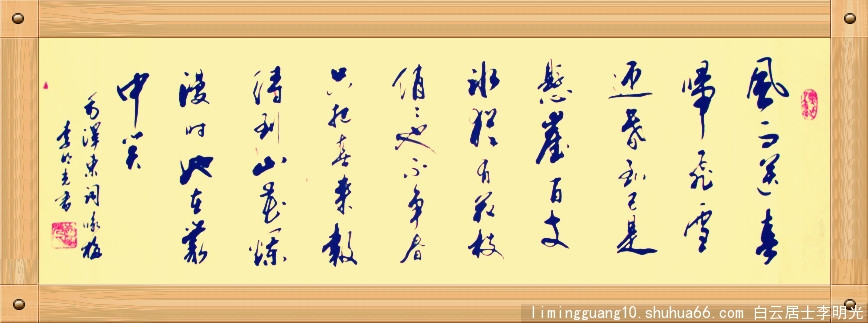 風雨送春
歸飛雪
迎春到已是
懸崖百丈
冰猶有花枝
俏〻也不争春
只把春来報
待到山花爛
漫时她在叢
中笑
毛澤東词咏梅
李明光書
limingguang10.shuhua66.com 白云居士李明光